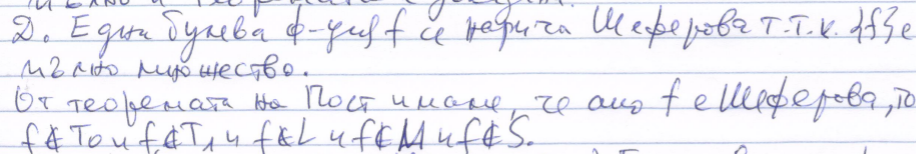 D. Една булева ф-ция f се нарича Шеферова т.т.к. {f} е
пълно множество.
От теоремата на Пост имаме, че ако f е Шеферова, то
f ∉ T₀ и f ∉ T₁ и f ∉ L и f ∉ M и f ∉ S.